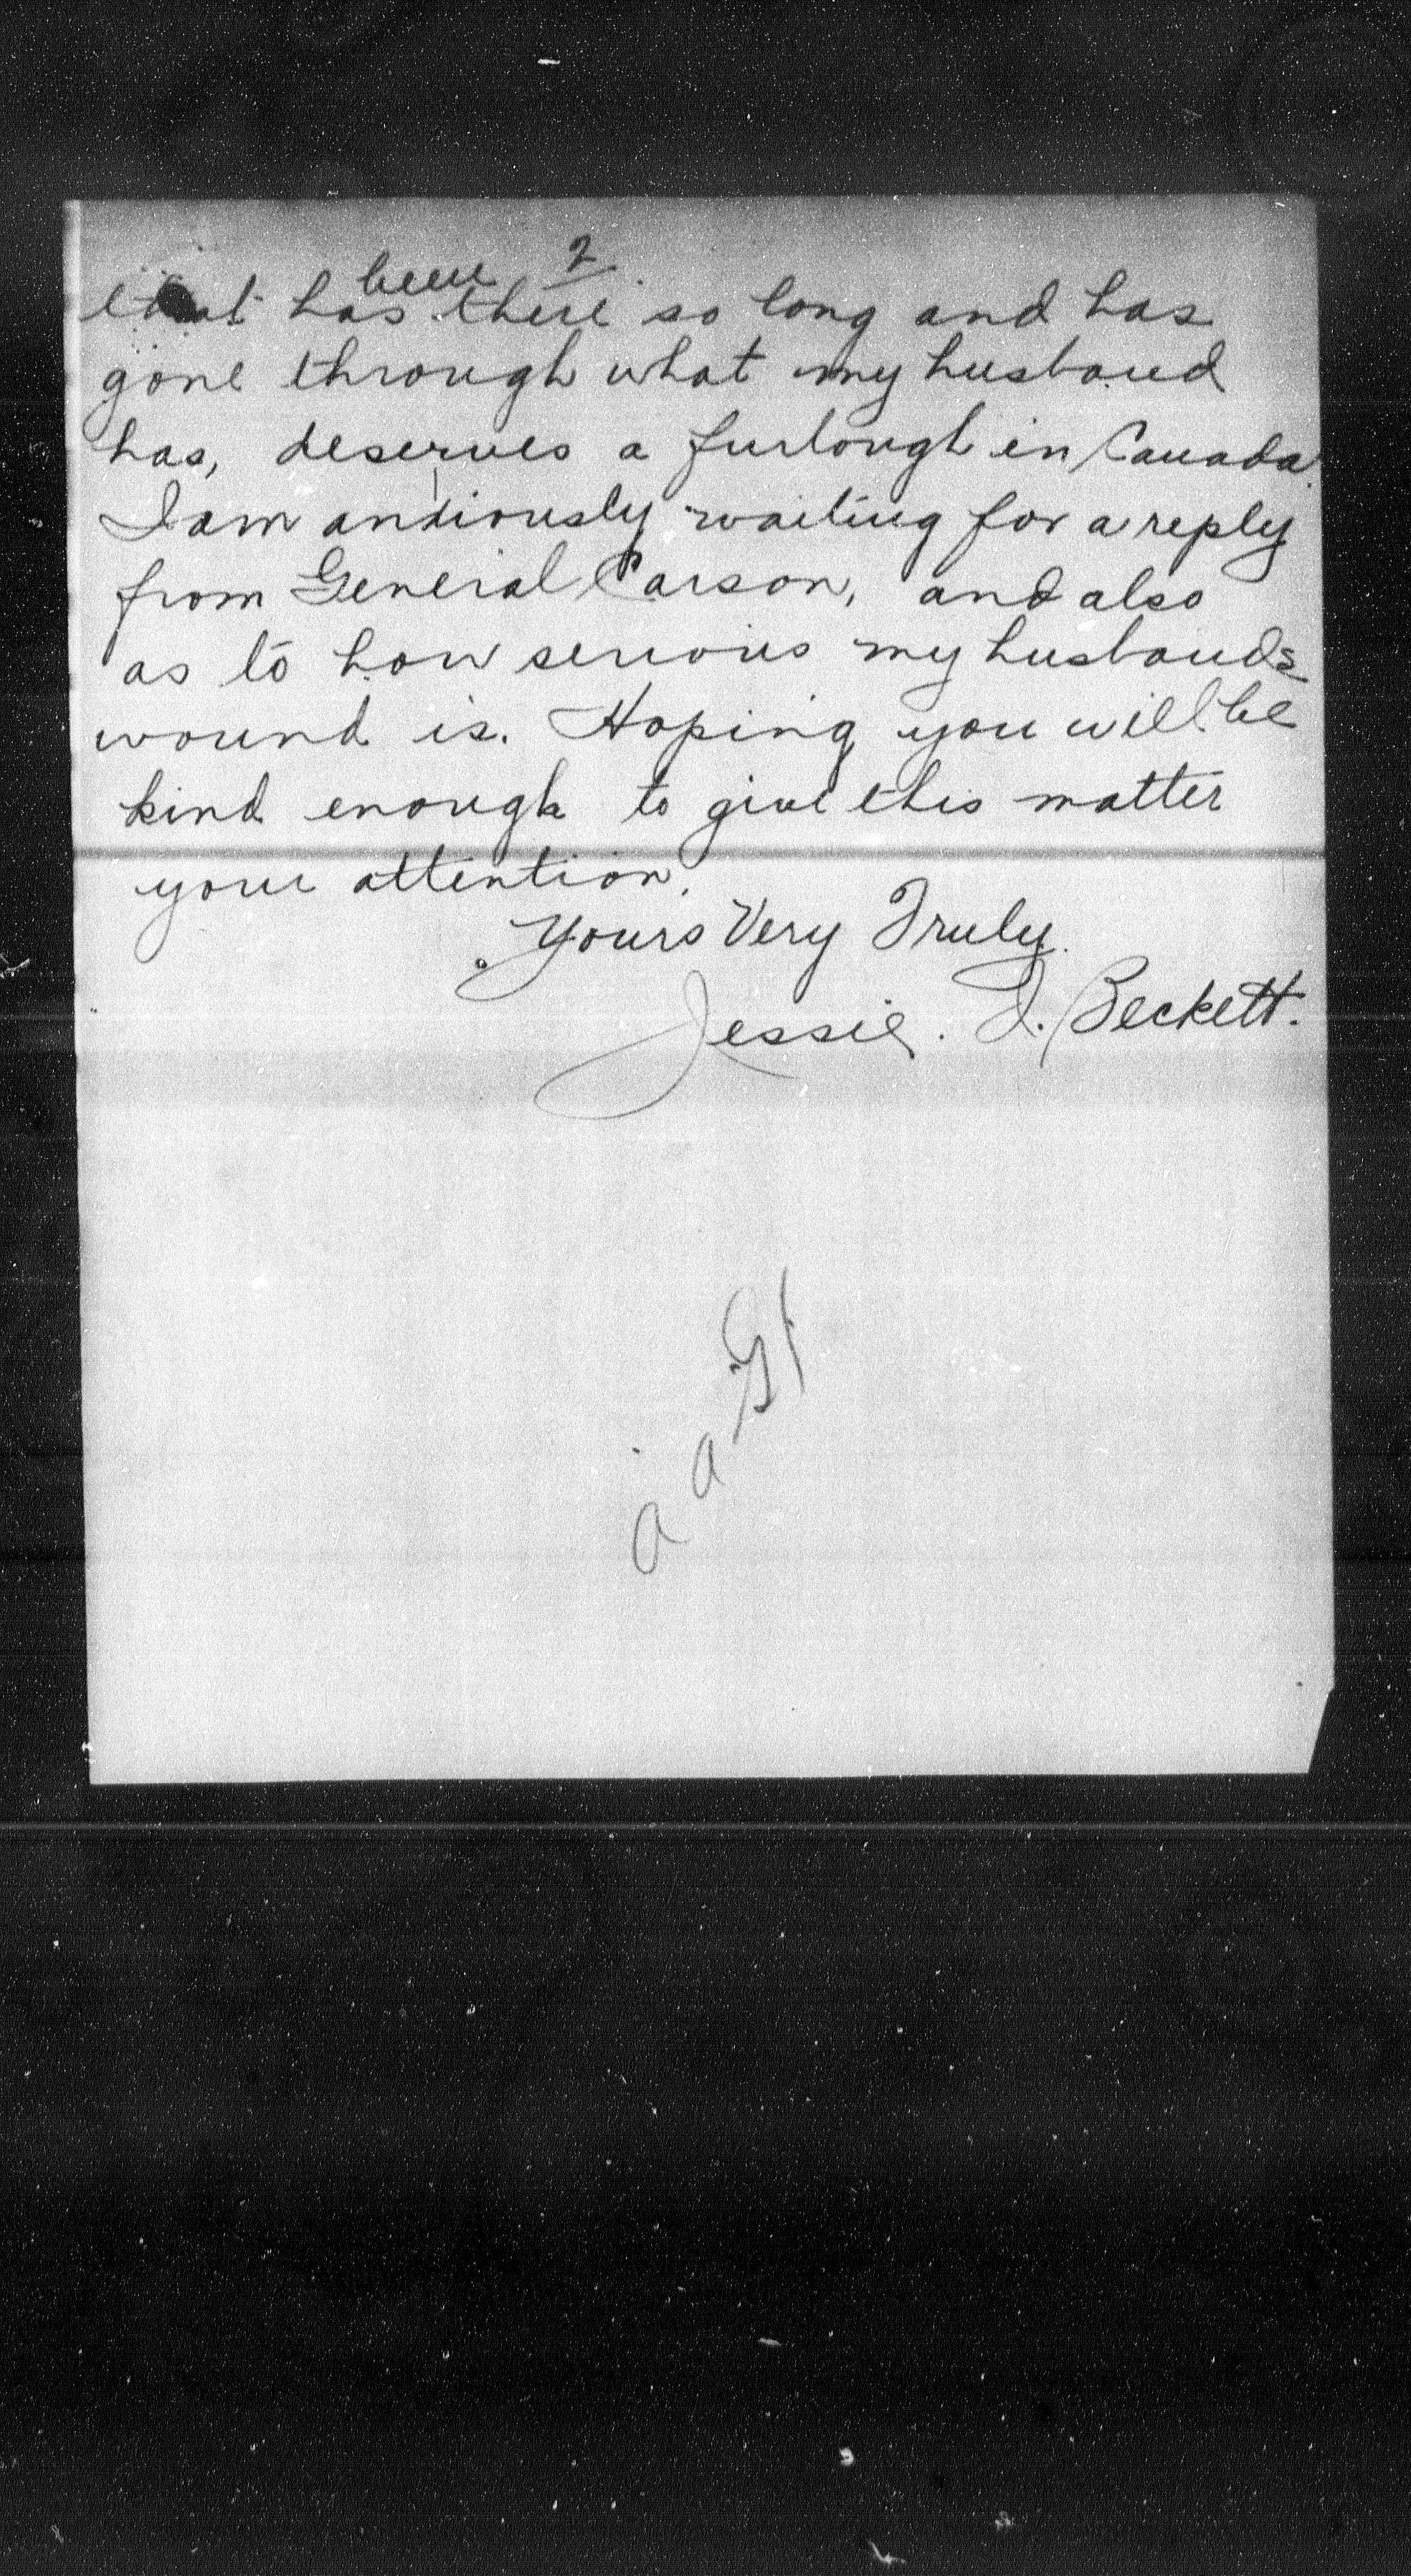 2
that has been there so long and has
gone through what my husband
has, deserves a furlough in Canada.
I am anxiously waiting for a reply
from General Carson, and also
as to how serious my husbands
wound is. Hoping you will be
kind enough to give this matter
your attention.
Yours Very Truly.
Jessie. I. Beckett.